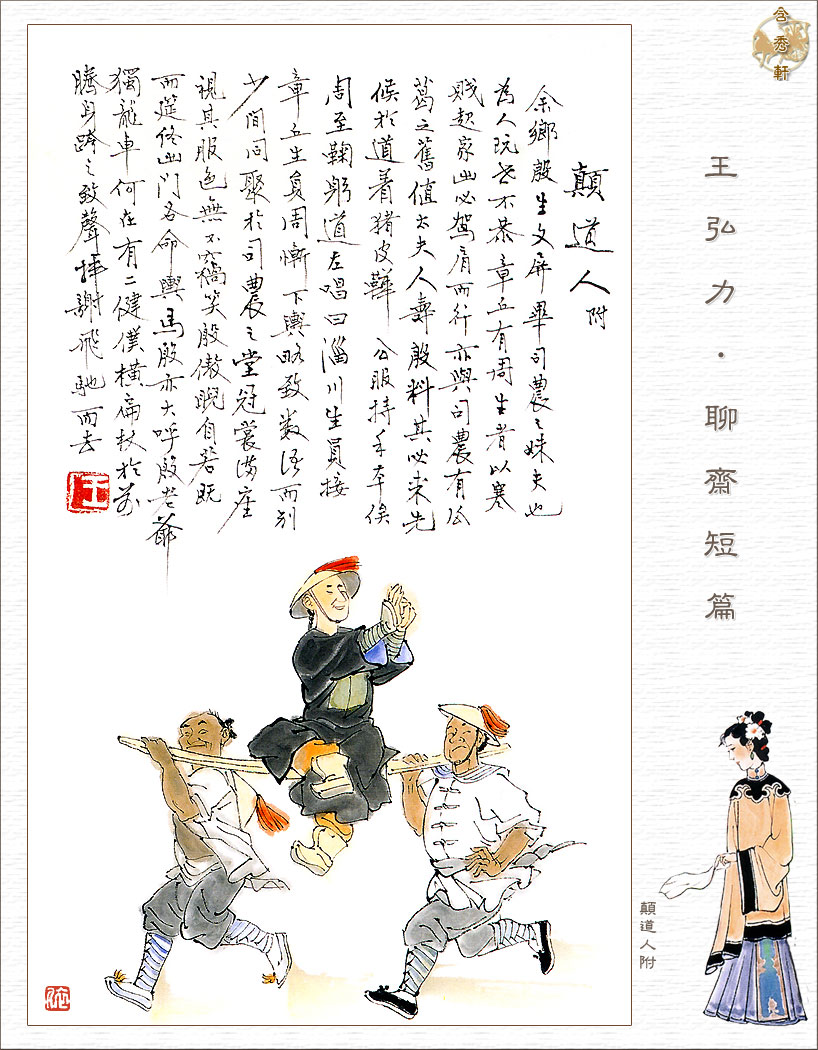 含秀軒
王弘力·聊齋短篇
顛道人附
余鄉殷生文屏畢司農之妹夫也
為人玩世不恭章丘有周生者以寒
賤起家出必駕肩而行亦與司農有瓜
葛之舊值太夫人壽殷料其必來先
候於道着猪皮鞾公服持手本俟
周至鞠躬道左唱曰淄川生員接
章丘生員周慚下輿略致数語而别
少間同聚於司農之堂冠裳满座
視其服色無不竊笑殷傲睨自若既
而筵終出門各命輿馬殷亦大呼殷老爺
獨龍車何在有二健僕橫扁杖於前
騰身跨之致聲拜謝飛馳而去
王
顛道人附